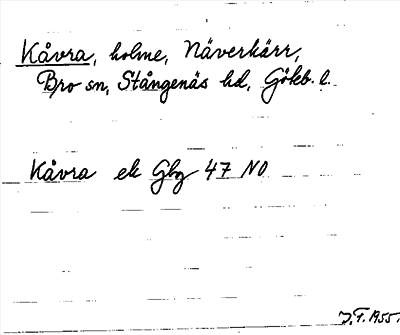 Kåvra, holme, Näverkärr,
Bro sn, Stångenäs hd, Götb. l.
Kåvra ek Gbg 47 NO
J.T. 1955.